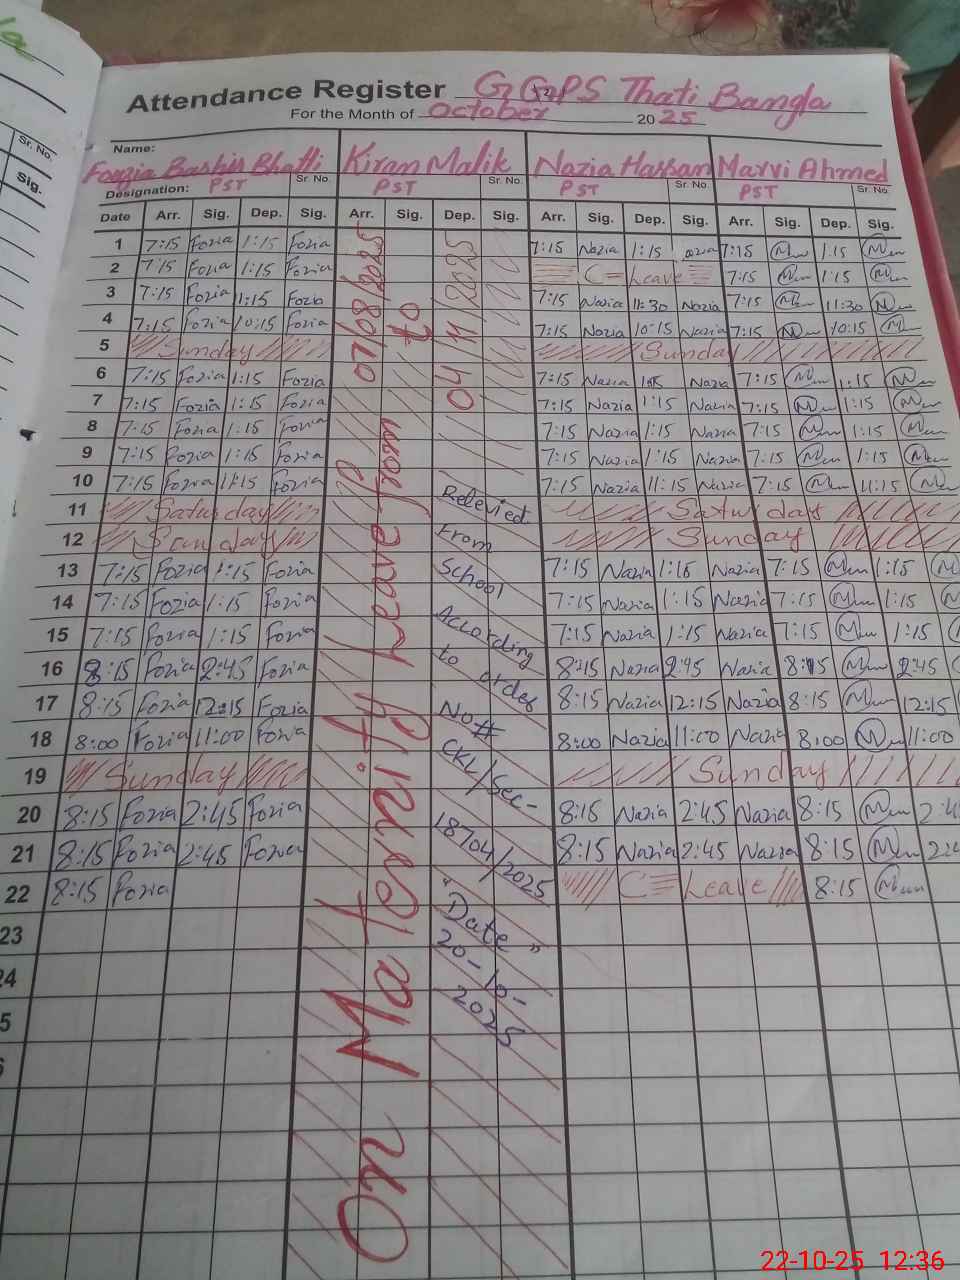 Attendance Register GGPS Thati Bangla
For the Month of October 2025
Name: Fouzia Bashir Bhatti Kiran Malik Nazia Hassan Marvi Ahmed
Designation: PST Sr. No. PST Sr. No. PST Sr. No. PST Sr. No.
Date Arr. Sig. Dep. Sig. Arr. Sig. Dep. Sig. Arr. Sig. Dep. Sig. Arr. Sig. Dep. Sig.
1 7:15 Fozia 1:15 Fozia 7:15 Nazia 1:15 7:15 1:15
2 7:15 Fozia 1:15 Fozia C= Leave 7:15 1:15
3 7:15 Fozia 1:15 Fozia 7:15 Nazia 11:30 Nazia 7:15 11:30
4 7:15 Fozia 10:15 Fozia 7:15 Nazia 10:15 Nazia 7:15 10:15
5 Sunday Sunday
6 7:15 Fozia 1:15 Fozia 7:15 Nazia 1:15 Nazia 7:15 1:15
7 7:15 Fozia 1:15 Fozia 7:15 Nazia 1:15 Nazia 7:15 1:15
8 7:15 Fozia 1:15 Fozia 7:15 Nazia 1:15 Nazia 7:15 1:15
9 7:15 Fozia 1:15 Fozia 7:15 Nazia 1:15 Nazia 7:15 1:15
10 7:15 Fozia 11:15 Fozia 7:15 Nazia 11:15 Nazia 7:15 11:15
11 Saturday Saturday
12 Sunday Sunday
13 7:15 Fozia 1:15 Fozia 7:15 Nazia 1:15 Nazia 7:15 1:15
14 7:15 Fozia 1:15 Fozia 7:15 Nazia 1:15 Nazia 7:15 1:15
15 7:15 Fozia 1:15 Fozia 7:15 Nazia 1:15 Nazia 7:15 1:15
16 8:15 Fozia 2:45 Fozia 8:15 Nazia 2:45 Nazia 8:15 2:45
17 8:15 Fozia 12:15 Fozia 8:15 Nazia 12:15 Nazia 8:15 12:15
18 8:00 Fozia 11:00 Fozia 8:00 Nazia 11:00 Nazia 8:00 11:00
19 Sunday Sunday
20 8:15 Fozia 2:45 Fozia 8:15 Nazia 2:45 Nazia 8:15 2:4
21 8:15 Fozia 2:45 Fozia 8:15 Nazia 2:45 Nazia 8:15
22 8:15 Fozia C= Leave 8:15
23
24
5
On Maternity Leave from
07/08/2025
to
04/11/2025
Relevied
From
School
According
to order
No#
CKL/Sec-
18704/2025
"Date"
20-10-
2025
Sr. No.
Sig.
22-10-25 12:36